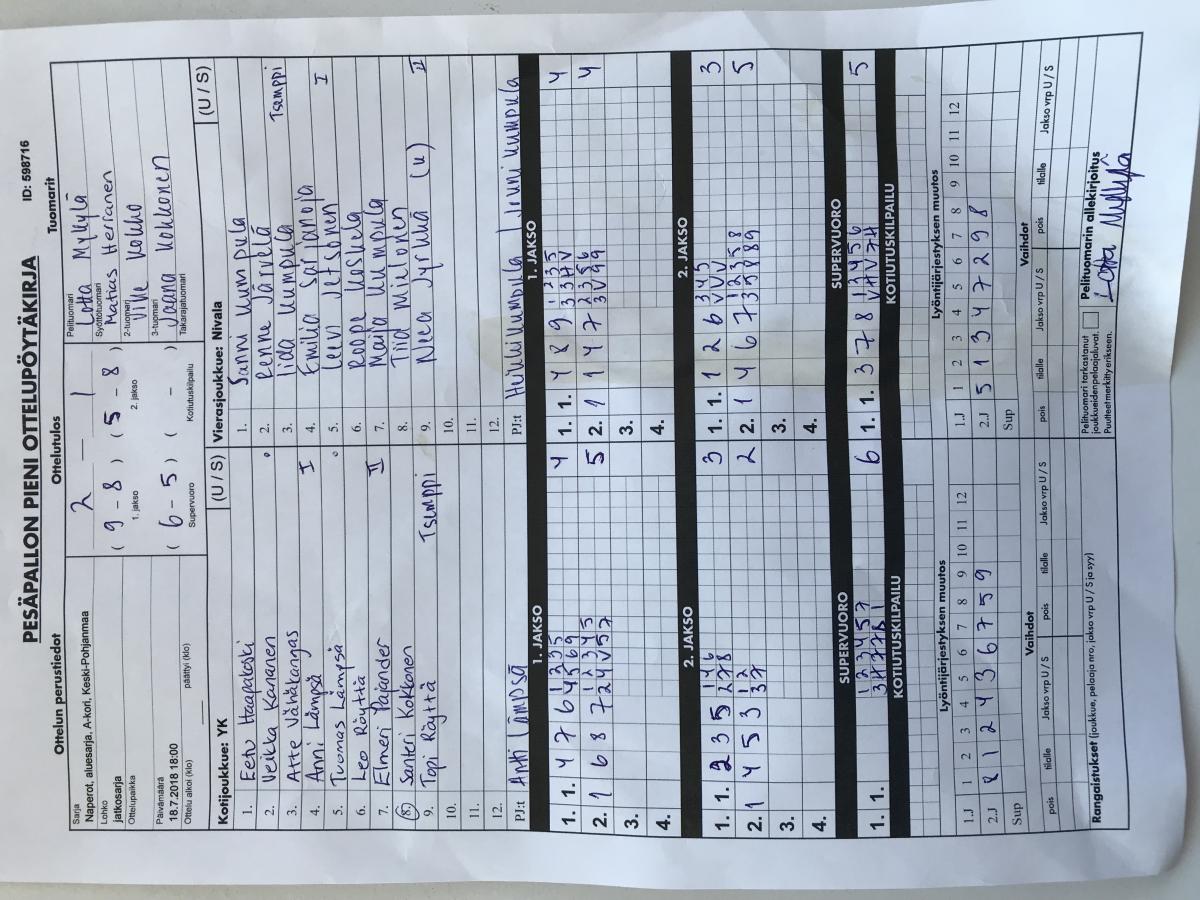 PESÄPALLON PIENI OTTELUPÖYTÄKIRJA ID: 598716
Ottelun perustiedot Ottelutulos Tuomarit
Sarja
Naperot, aluesarja, A-kori, Keski-Pohjanmaa
Lohko
jatkosarja
Ottelupaikka
Päivämäärä
18.7.2018 18:00
Ottelu alkoi (klo) päättyi (klo)
2 - 1
( 9 - 8 ) ( 5 - 8 )
1. jakso 2. jakso
( 6 - 5 ) ( - )
Supervuoro Kotiutuskilpailu
Pelituomari
Lotta Myllylä
Syöttötuomari
Matias Herranen
2-tuomari
Ville Kokko
3-tuomari
Jaana Kokkonen
Takarajatuomari
Kotijoukkue: YK (U / S)
1. Eetu Haapakoski
2. Veikka Kananen
3. Atte Vähäkangas
4. Anni Lämpsä I
5. Tuomas Lämpsä
6. Leo Räyttä
7. Elmeri Pajander II
8. Santeri Kokkonen
9. Topi Räyttä Tsemppi
10.
11.
12.
PJ:t Antti Lämpsä
Vierasjoukkue: Nivala (U / S)
1. Sanni Kumpula
2. Perttu Järvelä
3. Iida Kumpula Tsemppi
4. Emilia Sarjanoja
5. Leevi Jetsonen I
6. Roope Koskela
7. Maija Kumpula
8. Tiia Mielonen
9. Neea Jyrkkä (U) II
10.
11.
12.
PJ:t Heikki Kumpula Jouni Kumpula
1. JAKSO 1. JAKSO
1. 1. 4 7 6 4 5 6 9 4
1 2 3 5
2. 1 6 8 7 2 4 V 5 7 5
1 2 3 4 5
3.
4.
1. 1. 4 8 9 3 3 4 V 4
1 2 3 5
2. 1 4 7 3 V 9 9 4
2 3 5 6
3.
4.
2. JAKSO 2. JAKSO
1. 1. 2 3 5 2 7 8 3
1 4 6
2. 1 4 5 3 3 7 2
1 2
3.
4.
1. 1. 1 2 6 V V V 3
3 4 5
2. 1 4 6 7 3 5 8 8 9 5
1 2 3 5 8
3.
4.
SUPERVUORO SUPERVUORO
1. 1. 6
1 2 3 4 5 7
1. 1. 3 7 8 V 4 V 7 4 5
1 3 4 5 6
KOTIUTUSKILPAILU KOTIUTUSKILPAILU
Lyöntijärjestyksen muutos
1.J 1 2 3 4 5 6 7 8 9 10 11 12
2.J 8 1 2 4 3 6 7 5 9
Sup
Vaihdot
pois tilalle Jakso vrp U / S pois tilalle Jakso vrp U / S
Lyöntijärjestyksen muutos
1.J 1 2 3 4 5 6 7 8 9 10 11 12
2.J 5 1 3 4 7 2 9 8
Sup
Vaihdot
pois tilalle Jakso vrp U / S pois tilalle Jakso vrp U / S
Rangaistukset (joukkue, pelaaja nro, jakso vrp U / S ja syy)
Pelituomari tarkastanut
joukkueiden pelaajaluvat.
Puutteet merkitty erikseen.
Pelituomarin allekirjoitus
Lotta Myllylä